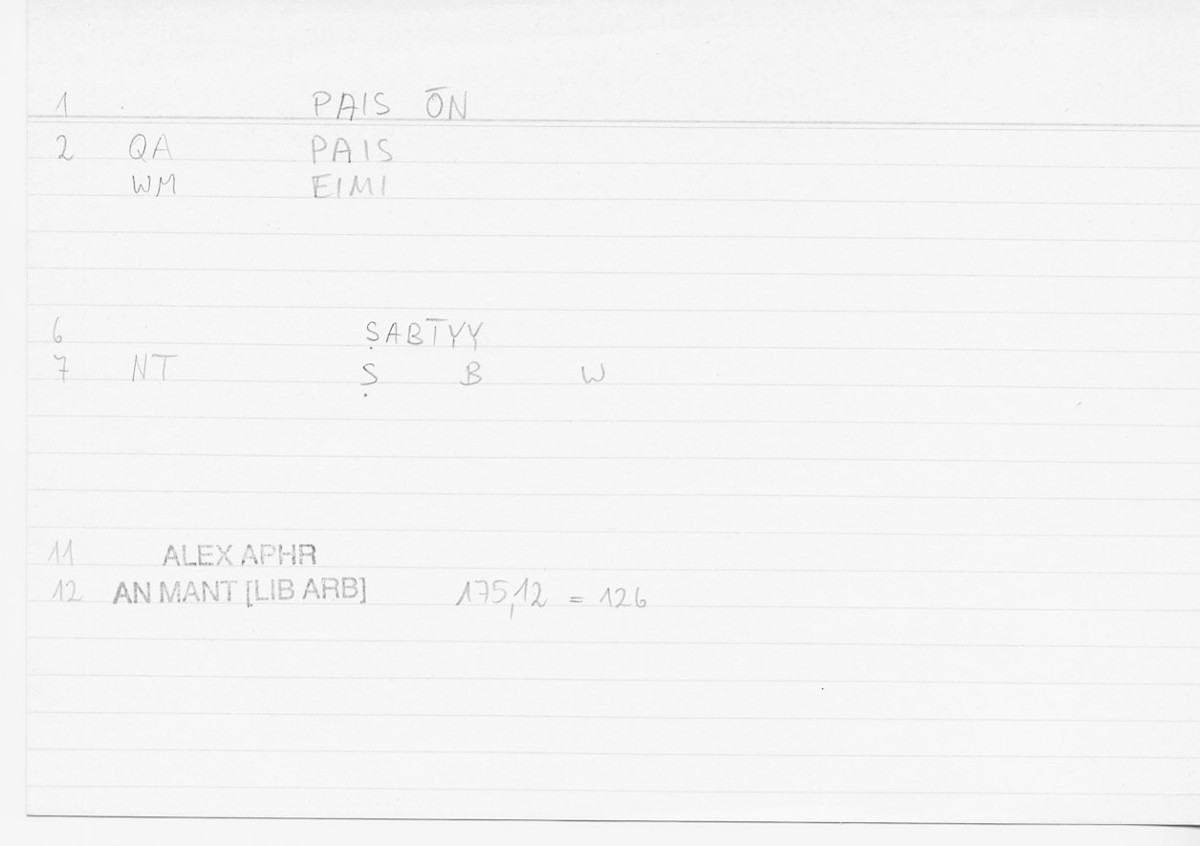 1 PAIS ŌN
2 QA PAIS
WM EIMI
6 ṢABĪYY
7 NT Ṣ B W
11 ALEX APHR
12 AN MANT [LIB ARB] 175,12 = 126